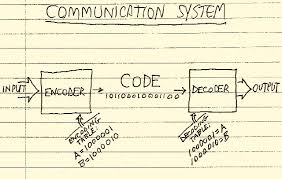 COMMUNICATION SYSTEM
INPUT
ENCODER
CODE
DECODER
OUTPUT
ENCODING
TABLE:
A=1000001
B=1000010
DECODING
TABLE:
1000001=A
1000010=B